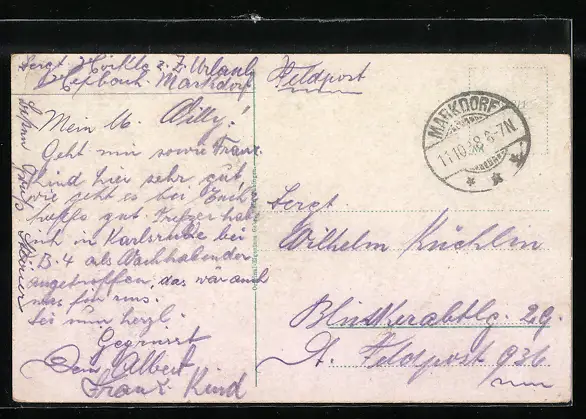 Sergt. Hörkle z. Z. Urlaub
Hepbach Markdorf
Feldpost
MARKDORF
11.10.18. 6-7N
Mein l. Willy!
Geht mir sowie Franz
Kind hier sehr gut,
wie geht es bei Euch
hoffe gut
habe
ich in Karlsruhe bei
B. 4 als Wachhabender
angetroffen, das wär auch
was für uns.
Sei nun herzl.
Gegrüsst
Dein Albert
Franz. Kind
Sergt.
Wilhelm Küchlin
Blinkerabtlg. 29.
A. Feldpost 936